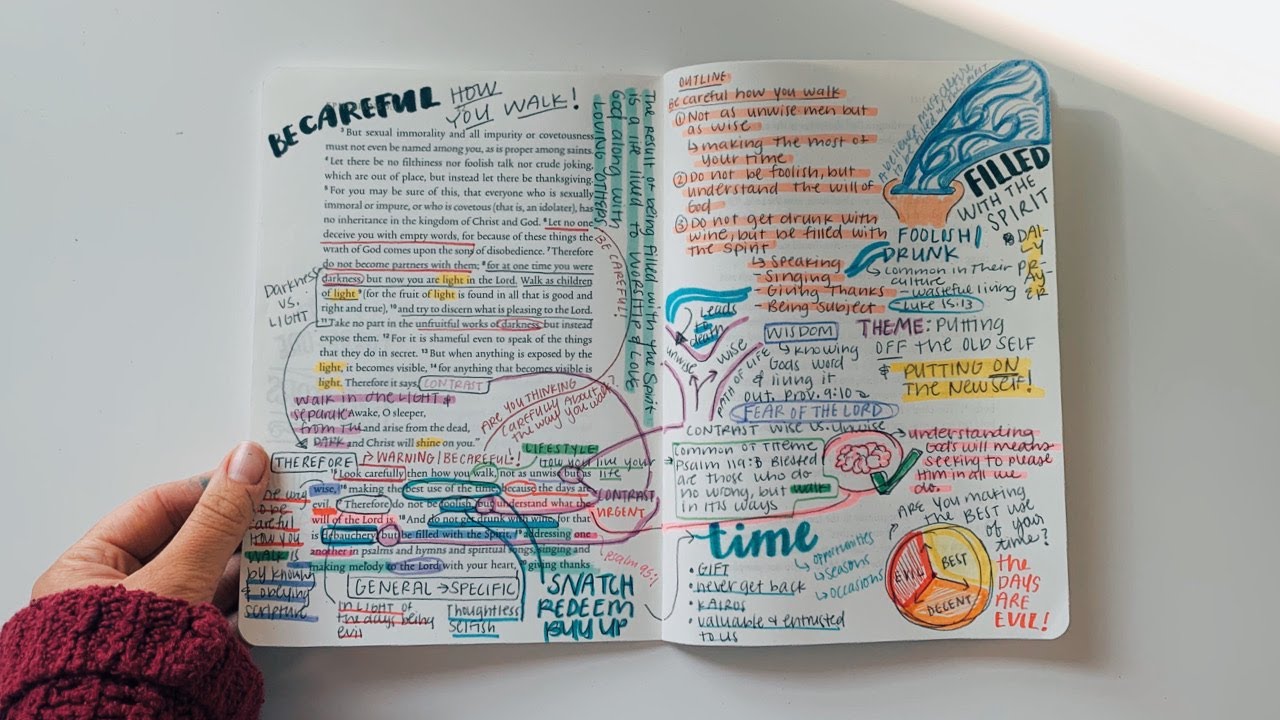 BE CAREFUL HOW
YOU WALK!
³ But sexual immorality and all impurity or covetousness
must not even be named among you, as is proper among saints.
⁴ Let there be no filthiness nor foolish talk nor crude joking,
which are out of place, but instead let there be thanksgiving.
⁵ For you may be sure of this, that everyone who is sexually
immoral or impure, or who is covetous (that is, an idolater), has
no inheritance in the kingdom of Christ and God. ⁶ Let no one
deceive you with empty words, for because of these things the
wrath of God comes upon the sons of disobedience. ⁷ Therefore
do not become partners with them; ⁸ for at one time you were
darkness, but now you are light in the Lord. Walk as children
of light ⁹ (for the fruit of light is found in all that is good and
right and true), ¹⁰ and try to discern what is pleasing to the Lord.
¹¹ Take no part in the unfruitful works of darkness, but instead
expose them. ¹² For it is shameful even to speak of the things
that they do in secret. ¹³ But when anything is exposed by the
light, it becomes visible, ¹⁴ for anything that becomes visible is
light. Therefore it says, CONTRAST
Darkness
VS.
LIGHT
The result of being filled with the Spirit
is a life lived to WORSHIP & LOVE
God along with
LOVING OTHERS
BE CAREFUL!
walk in the LIGHT &
separate
from the
DARK
Awake, O sleeper,
and arise from the dead,
and Christ will shine on you."
ARE YOU THINKING
CAREFULLY ABOUT
the way YOU WALK?
THEREFORE → WARNING/BE CAREFUL!
LIFESTYLE
How you live your
life
¹⁵ Look carefully then how you walk, not as unwise but as
wise, ¹⁶ making the best use of the time, because the days are
evil. ¹⁷ Therefore do not be foolish, but understand what the
will of the Lord is. ¹⁸ And do not get drunk with wine, for that
is debauchery, but be filled with the Spirit, ¹⁹ addressing one
another in psalms and hymns and spiritual songs, singing and
making melody to the Lord with your heart, ²⁰ giving thanks
CONTRAST
URGENT
psalm 95:1
careful
HOW YOU
WALK is
by knowing
& obeying
scripture
GENERAL → SPECIFIC
IN LIGHT OF
the days being
evil
Thoughtless
SELFISH
SNATCH
REDEEM
BUY UP
OUTLINE
Be careful how you walk
① Not as unwise men but
as wise
↳ making the most of
your time
② Do not be foolish, but
understand the will of
God
③ Do not get drunk with
wine, but be filled with
the Spirit
↳ Speaking
- Singing
- Giving Thanks
- Being Subject
A believer must
FILLED
WITH THE
SPIRIT
DAILY
PRAYER
FOOLISH/
DRUNK
↳ common in their
culture
- wasteful living
Luke 15:13
Leads
to
death
unwise
wise
PATH OF LIFE
WISDOM
↳ knowing
Gods word
& living it
out. Prov. 9:10
FEAR OF THE LORD
CONTRAST WISE VS. UNWISE
THEME: PUTTING
OFF THE OLD SELF
& PUTTING ON
THE NEW SELF!
→ Common OT THEME
Psalm 119:3 Blessed
are those who do
no wrong, but walk
in His ways
understanding
Gods will means
seeking to please
Him in all we
do.
time
• GIFT
• never get back
• KAIROS
• valuable & entrusted
to us
↳ opportunities
↳ seasons
↳ occasions
ARE YOU MAKING
the BEST USE
OF your
time?
EVIL
BEST
DECENT
the
DAYS
ARE
EVIL!